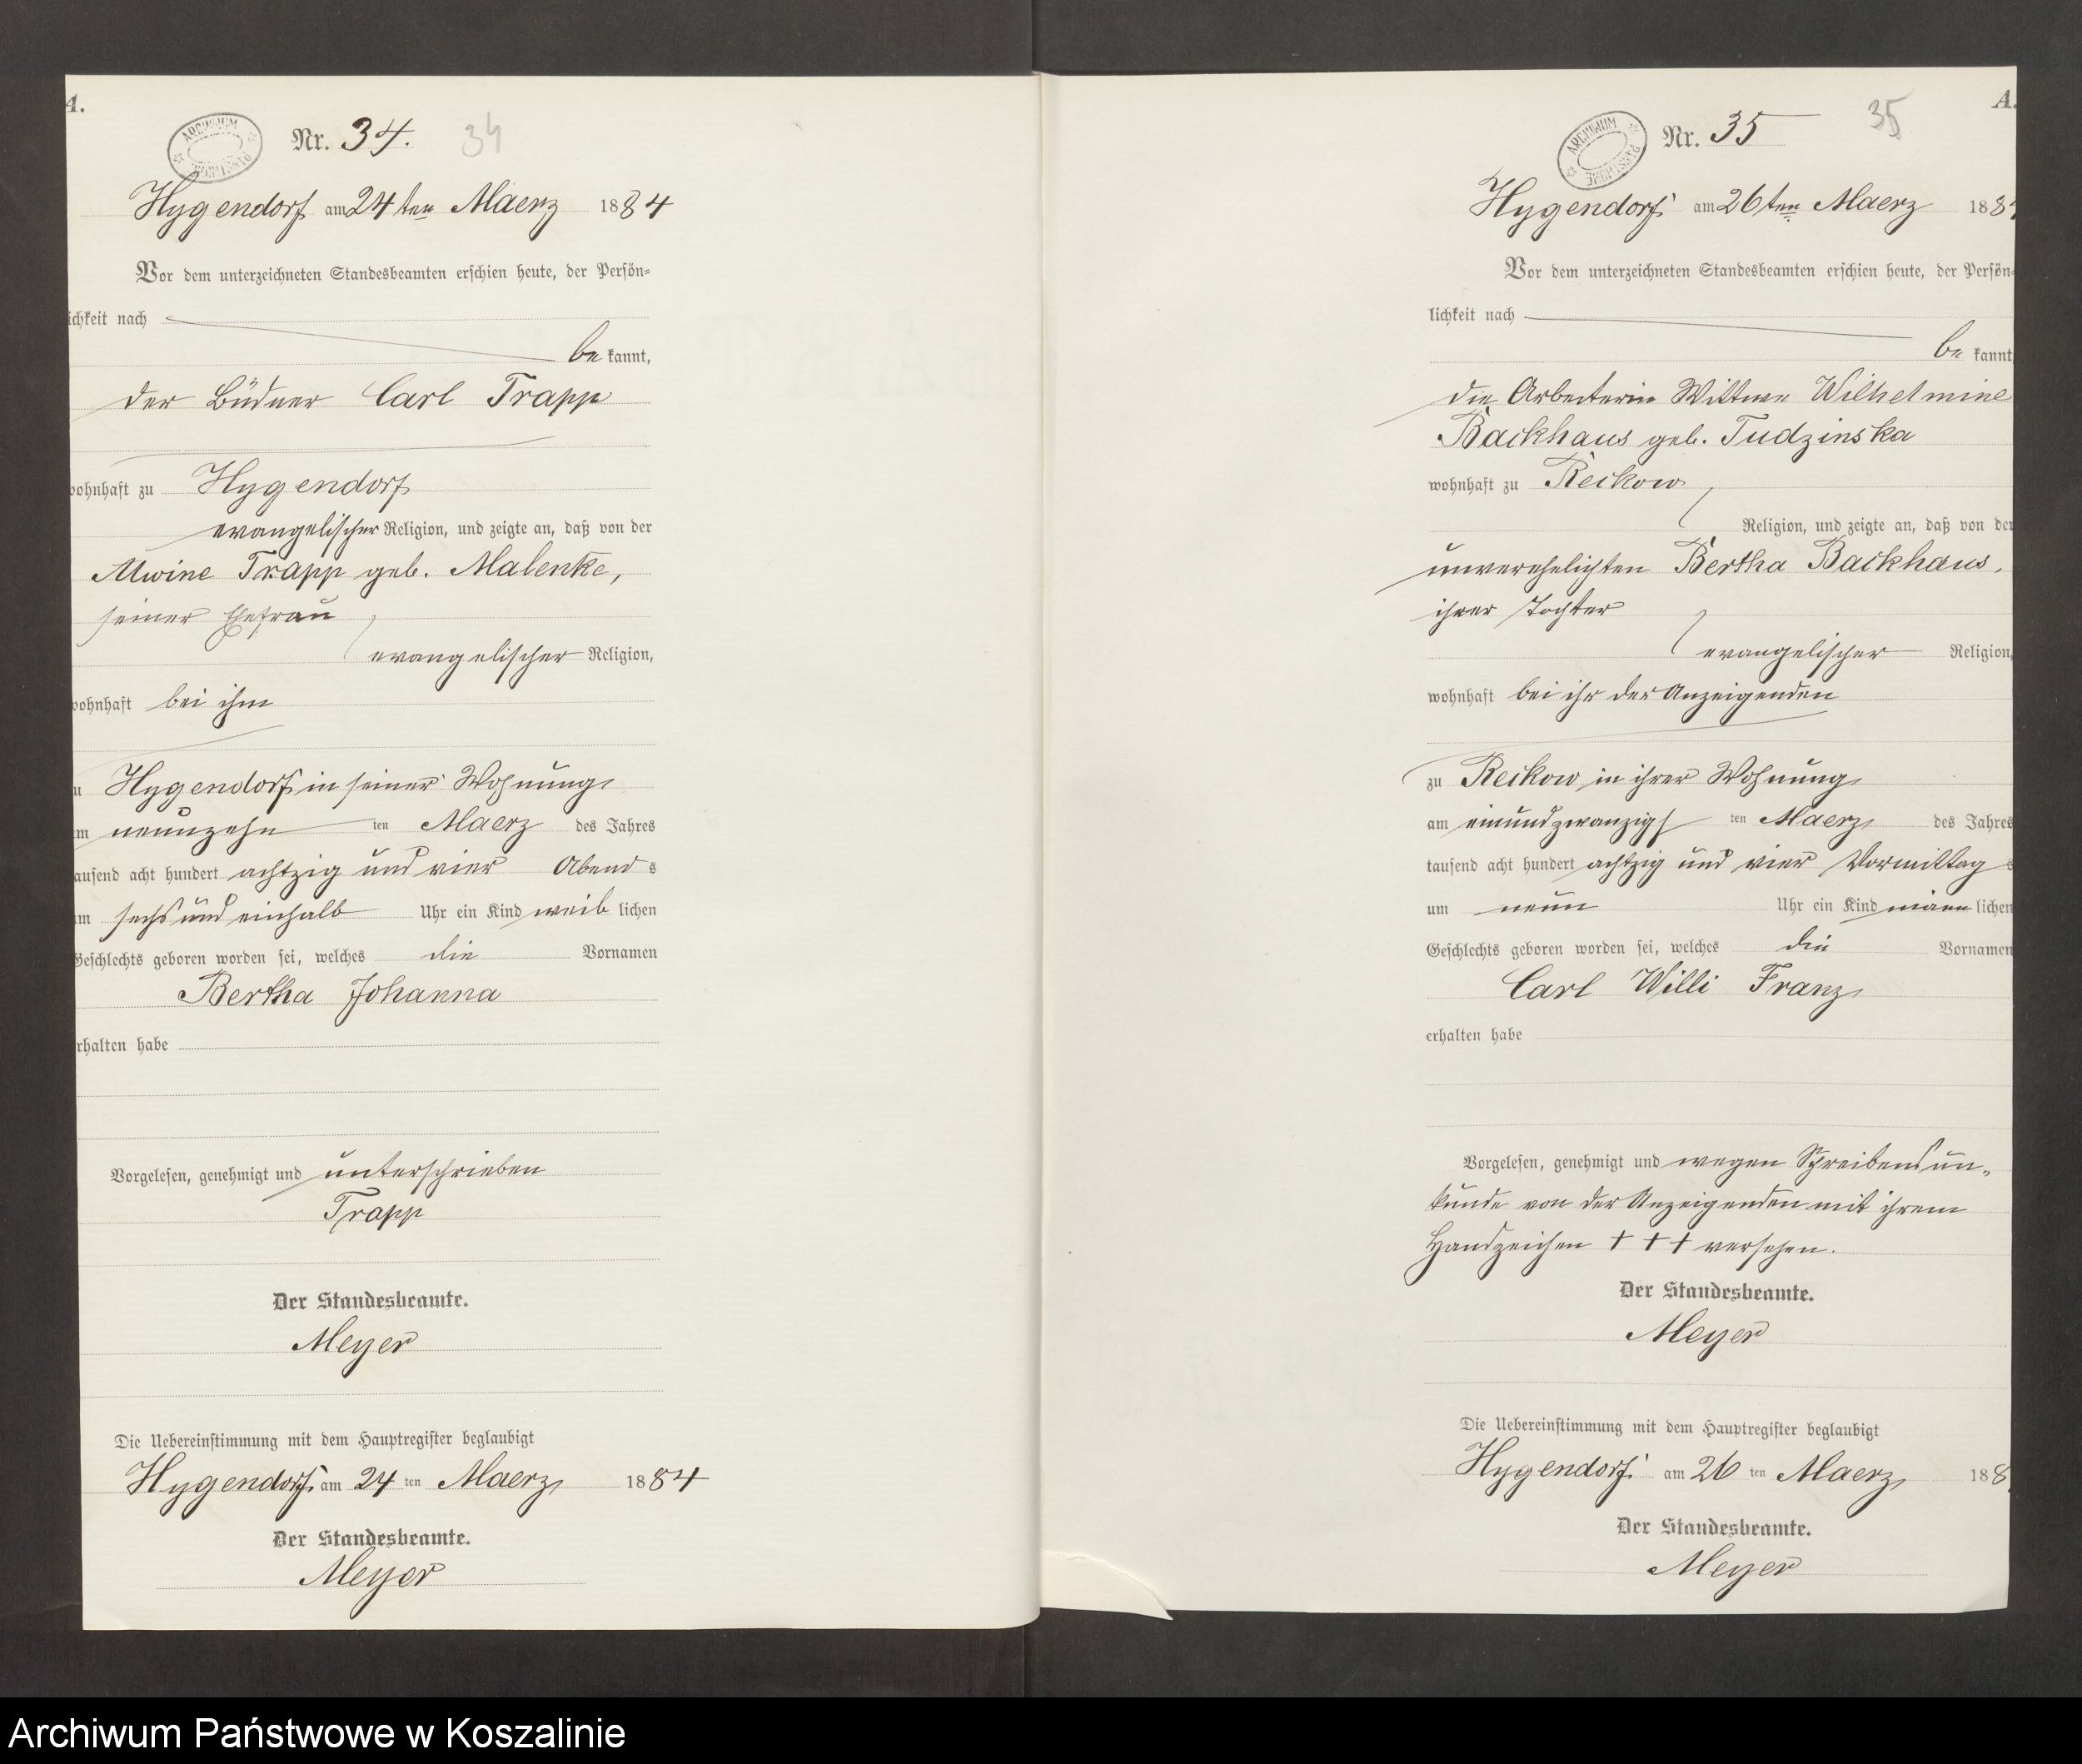 A.
ARCHIWUM PAŃSTWOWE
Nr. 34. 34
Hygendorf am 24ten Maerz 1884
Vor dem unterzeichneten Standesbeamten erschien heute, der Persön-
ichkeit nach
be kannt,
der Büdner Carl Trapp
wohnhaft zu Hygendorf
evangelischer Religion, und zeigte an, daß von der
Alwine Trapp geb. Malenke,
seiner Ehefrau
evangelischer Religion,
wohnhaft bei ihm
zu Hygendorf in seiner Wohnung
am neunzehn ten Maerz des Jahres
tausend acht hundert achtzig und vier Abend s
um sechs und einhalb Uhr ein Kind weib lichen
Geschlechts geboren worden sei, welches die Vornamen
Bertha Johanna
erhalten habe
Vorgelesen, genehmigt und unterschrieben
Trapp
Der Standesbeamte.
Meyer
Die Uebereinstimmung mit dem Hauptregister beglaubigt
Hygendorf am 24 ten Maerz 1884
Der Standesbeamte.
Meyer
A.
ARCHIWUM PAŃSTWOWE
Nr. 35 35
Hygendorf am 26ten Maerz 188
Vor dem unterzeichneten Standesbeamten erschien heute, der Persön-
lichkeit nach
be kannt
die Arbeiterin Wittwe Wilhelmine
Backhaus geb. Tudzinska
wohnhaft zu Reckow
Religion, und zeigte an, daß von der
unverehelichten Bertha Backhaus,
ihrer Tochter
evangelischer Religion,
wohnhaft bei ihr der Anzeigenden
zu Reckow in ihrer Wohnung
am einundzwanzigs ten Maerz des Jahres
tausend acht hundert achtzig und vier Vormittag s
um neun Uhr ein Kind männ lichen
Geschlechts geboren worden sei, welches die Vornamen
Carl Willi Franz
erhalten habe
Vorgelesen, genehmigt und wegen Schreibensun-
kunde von der Anzeigenden mit ihrem
Handzeichen + + + versehen.
Der Standesbeamte.
Meyer
Die Uebereinstimmung mit dem Hauptregister beglaubigt
Hygendorf am 26 ten Maerz 188
Der Standesbeamte.
Meyer
Archiwum Państwowe w Koszalinie